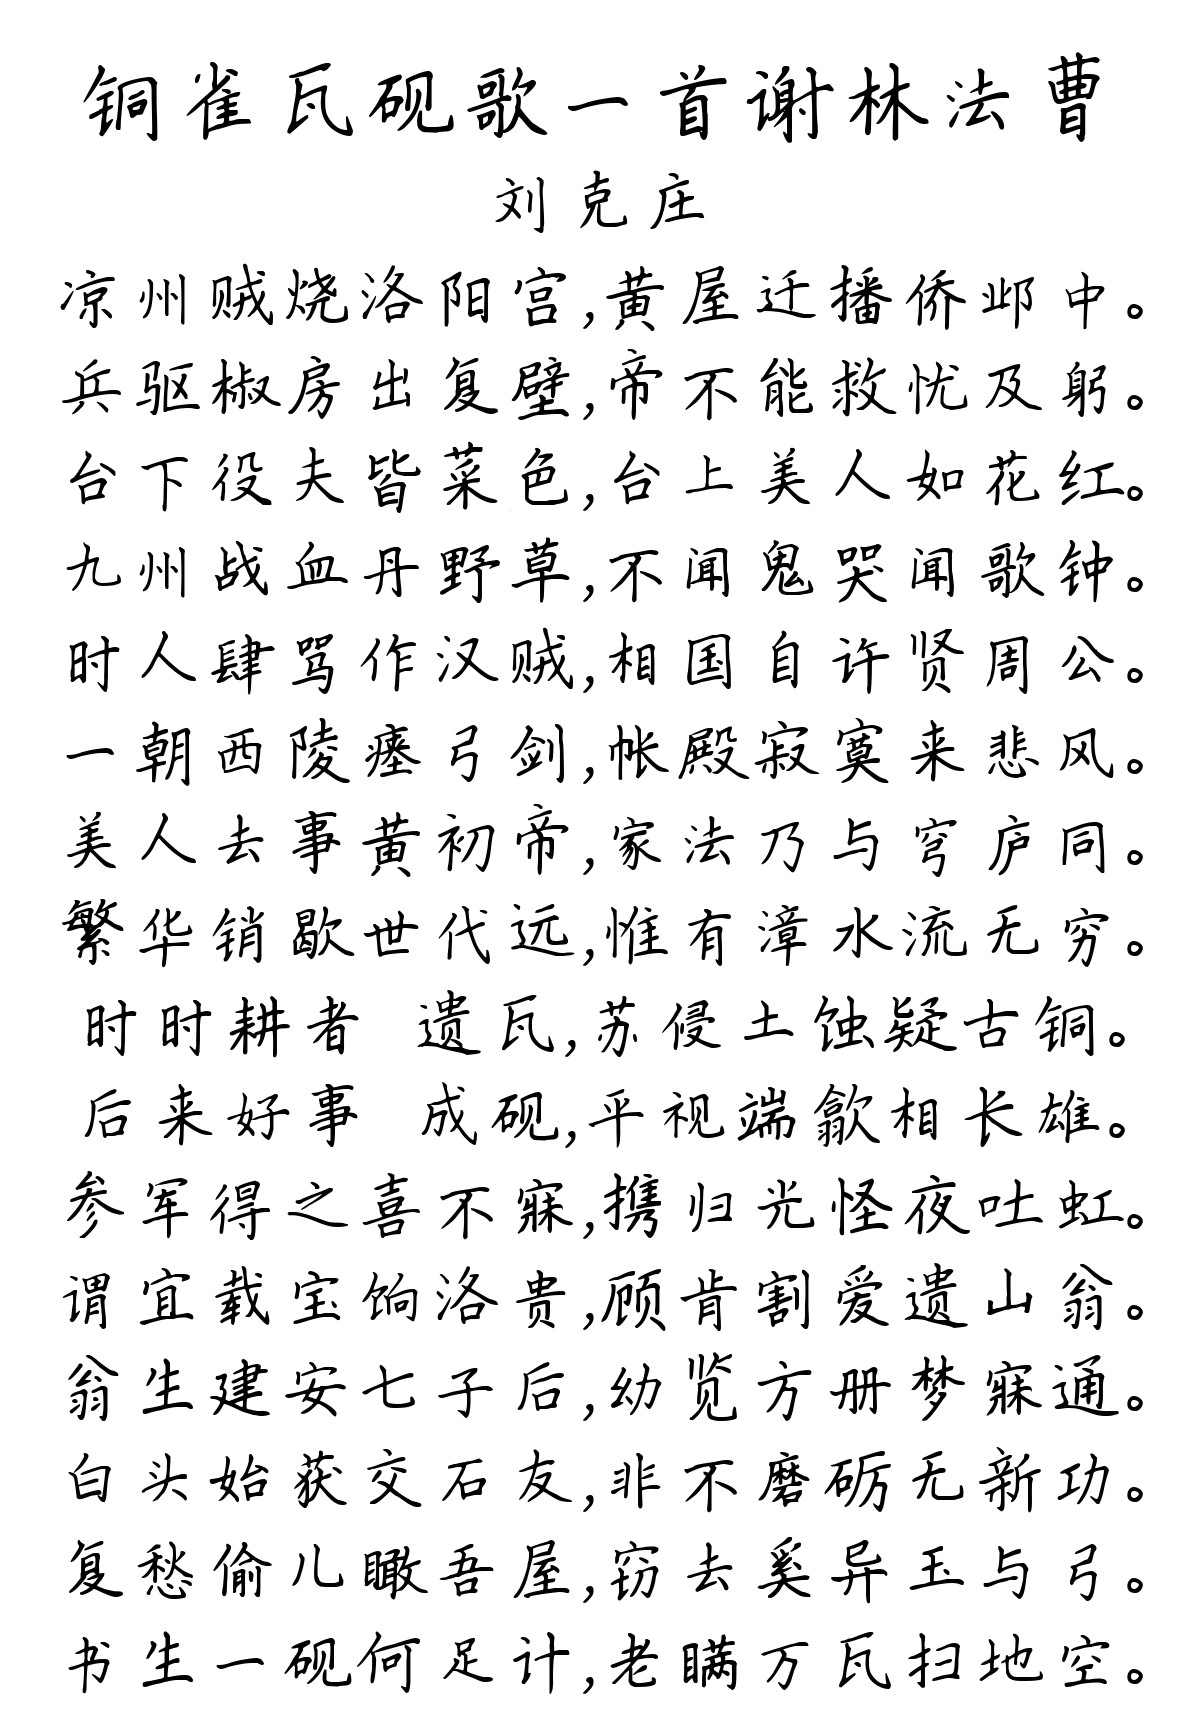 铜雀瓦砚歌一首谢林法曹
刘克庄
凉州贼烧洛阳宫,黄屋迁播侨邺中。
兵驱椒房出复壁,帝不能救忧及躬。
台下役夫皆菜色,台上美人如花红。
九州战血丹野草,不闻鬼哭闻歌钟。
时人肆骂作汉贼,相国自许贤周公。
一朝西陵瘗弓剑,帐殿寂寞来悲风。
美人去事黄初帝,家法乃与穹庐同。
繁华销歇世代远,惟有漳水流无穷。
时时耕者 遗瓦,苏侵土蚀疑古铜。
后来好事 成砚,平视端歙相长雄。
参军得之喜不寐,携归光怪夜吐虹。
谓宜载宝饷洛贵,顾肯割爱遗山翁。
翁生建安七子后,幼览方册梦寐通。
白头始获交石友,非不磨砺无新功。
复愁偷儿瞰吾屋,窃去奚异玉与弓。
书生一砚何足计,老瞒万瓦扫地空。